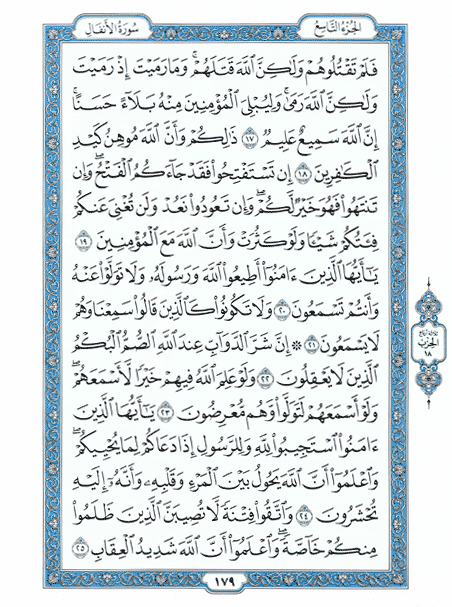 الجزء التاسع
سورة الأنفال
فَلَمْ تَقْتُلُوهُمْ وَلَٰكِنَّ ٱللَّهَ قَتَلَهُمْ ۚ وَمَا رَمَيْتَ إِذْ رَمَيْتَ
وَلَٰكِنَّ ٱللَّهَ رَمَىٰ ۚ وَلِيُبْلِىَ ٱلْمُؤْمِنِينَ مِنْهُ بَلَآءً حَسَنًا ۚ
إِنَّ ٱللَّهَ سَمِيعٌ عَلِيمٌ ١٧ ذَٰلِكُمْ وَأَنَّ ٱللَّهَ مُوهِنُ كَيْدِ
ٱلْكَٰفِرِينَ ١٨ إِن تَسْتَفْتِحُوا۟ فَقَدْ جَآءَكُمُ ٱلْفَتْحُ ۖ وَإِن
تَنتَهُوا۟ فَهُوَ خَيْرٌ لَّكُمْ ۖ وَإِن تَعُودُوا۟ نَعُدْ وَلَن تُغْنِىَ عَنكُمْ
فِئَتُكُمْ شَيْـًٔا وَلَوْ كَثُرَتْ وَأَنَّ ٱللَّهَ مَعَ ٱلْمُؤْمِنِينَ ١٩
يَٰٓأَيُّهَا ٱلَّذِينَ ءَامَنُوٓا۟ أَطِيعُوا۟ ٱللَّهَ وَرَسُولَهُۥ وَلَا تَوَلَّوْا۟ عَنْهُ
وَأَنتُمْ تَسْمَعُونَ ٢٠ وَلَا تَكُونُوا۟ كَٱلَّذِينَ قَالُوا۟ سَمِعْنَا وَهُمْ
لَا يَسْمَعُونَ ٢١ ۞ إِنَّ شَرَّ ٱلدَّوَآبِّ عِندَ ٱللَّهِ ٱلصُّمُّ ٱلْبُكْمُ
ٱلَّذِينَ لَا يَعْقِلُونَ ٢٢ وَلَوْ عَلِمَ ٱللَّهُ فِيهِمْ خَيْرًا لَّأَسْمَعَهُمْ ۖ
وَلَوْ أَسْمَعَهُمْ لَتَوَلَّوا۟ وَّهُم مُّعْرِضُونَ ٢٣ يَٰٓأَيُّهَا ٱلَّذِينَ
ءَامَنُوا۟ ٱسْتَجِيبُوا۟ لِلَّهِ وَلِلرَّسُولِ إِذَا دَعَاكُمْ لِمَا يُحْيِيكُمْ ۖ
وَٱعْلَمُوٓا۟ أَنَّ ٱللَّهَ يَحُولُ بَيْنَ ٱلْمَرْءِ وَقَلْبِهِۦ وَأَنَّهُۥٓ إِلَيْهِ
تُحْشَرُونَ ٢٤ وَٱتَّقُوا۟ فِتْنَةً لَّا تُصِيبَنَّ ٱلَّذِينَ ظَلَمُوا۟
مِنكُمْ خَآصَّةً ۖ وَٱعْلَمُوٓا۟ أَنَّ ٱللَّهَ شَدِيدُ ٱلْعِقَابِ ٢٥
الحزب
١٨
١٧٩